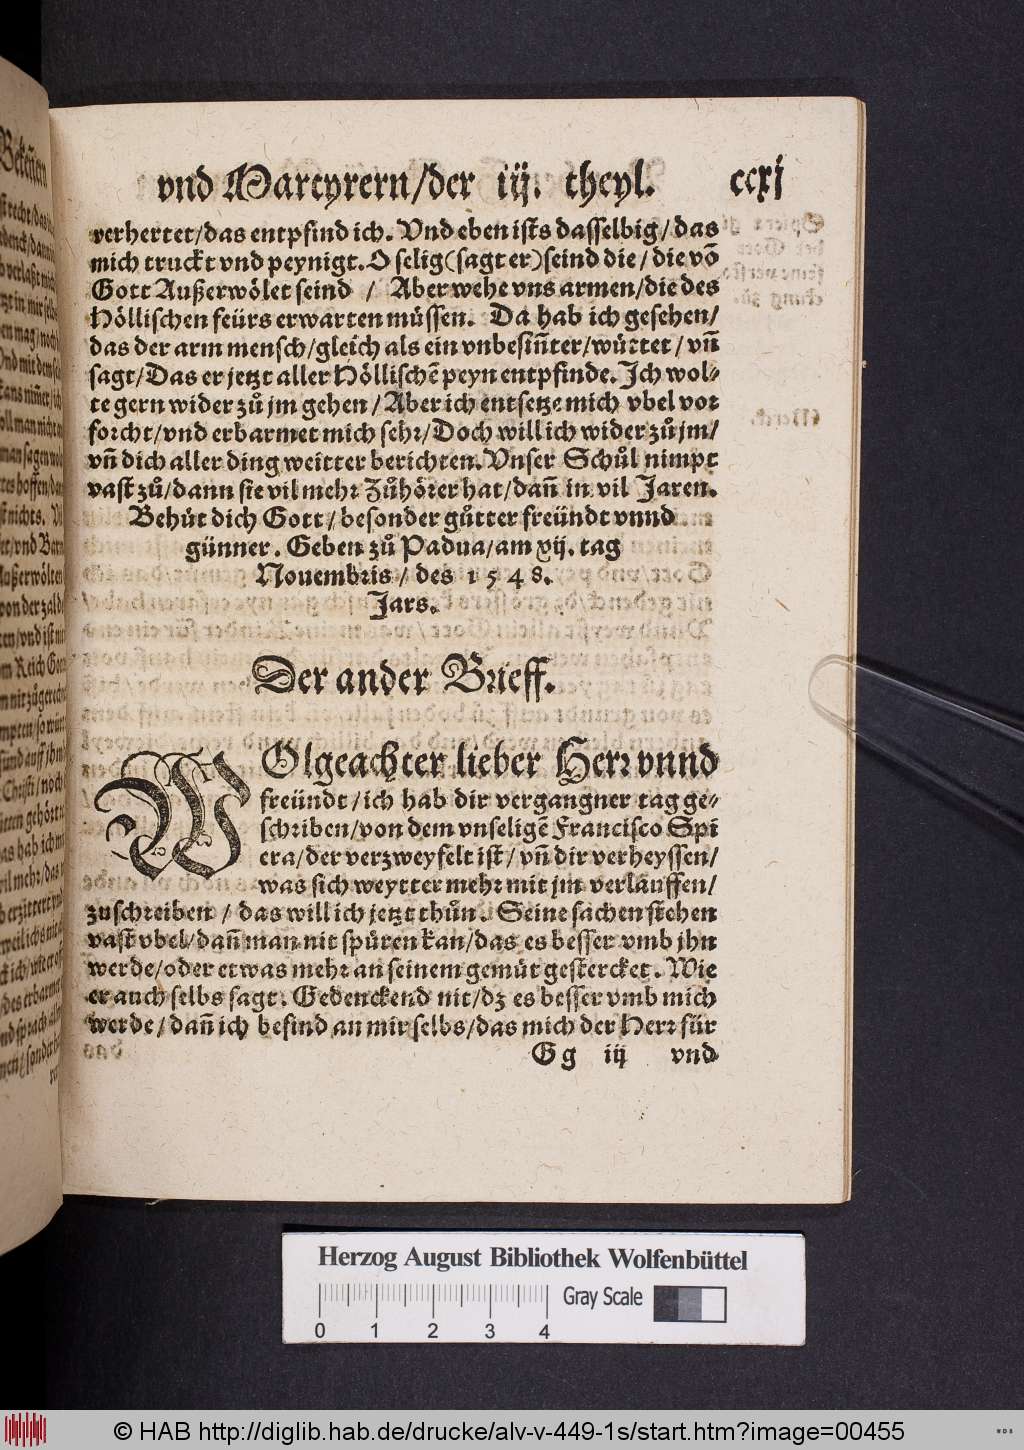 vnd Martyrern/der iij. theyl. ccxj
verhertet/das entpfind ich. Vnd eben ists dasselbig/das
mich truckt vnd peynigt. O selig (sagt er) seind die/die võ
Gott Außerwoͤlet seind / Aber wehe vns armen/die des
Hoͤllischen feürs erwarten muͤssen. Da hab ich gesehen/
das der arm mensch/gleich als ein vnbesiñter/wuͤrtet/vñ
sagt/Das er jetzt aller Hoͤllischẽ peyn entpfinde. Ich wol-
te gern wider zů jm gehen/Aber ich entsetze mich vbel vor
forcht/vnd erbarmet mich sehr/Doch will ich wider zů jm/
vñ dich aller ding weitter berichten. Vnser Schůl nimpt
vast zů/dann sie vil mehr Zůhoͤrer hat/dañ in vil Jaren.
Behuͤt dich Gott/besonder gůtter freündt vnnd
guͤnner. Geben zů Padua/am xij. tag
Nouembris/des 1548.
Jars.
Der ander Brieff.
WOlgeachter lieber Herr vnnd
freündt/ich hab dir vergangner tag ge-
schriben/von dem vnseligẽ Francisco Spi
era/der verzweyfelt ist/vñ dir verheyssen/
was sich weytter mehr mit jm verlauffen/
zuschreiben/das will ich jetzt thůn. Seine sachen stehen
vast vbel/dañ man nit spuͤren kan/das es besser vmb jhn
werde/oder etwas mehr an seinem gemuͤt gestercket. Wie
er auch selbs sagt. Gedenckend nit/dz es besser vmb mich
werde/dañ ich befind an mir selbs/das mich der Herr für
Gg iij vnd
Herzog August Bibliothek Wolfenbüttel
Gray Scale
0 1 2 3 4
© HAB http://diglib.hab.de/drucke/alv-v-449-1s/start.htm?image=00455